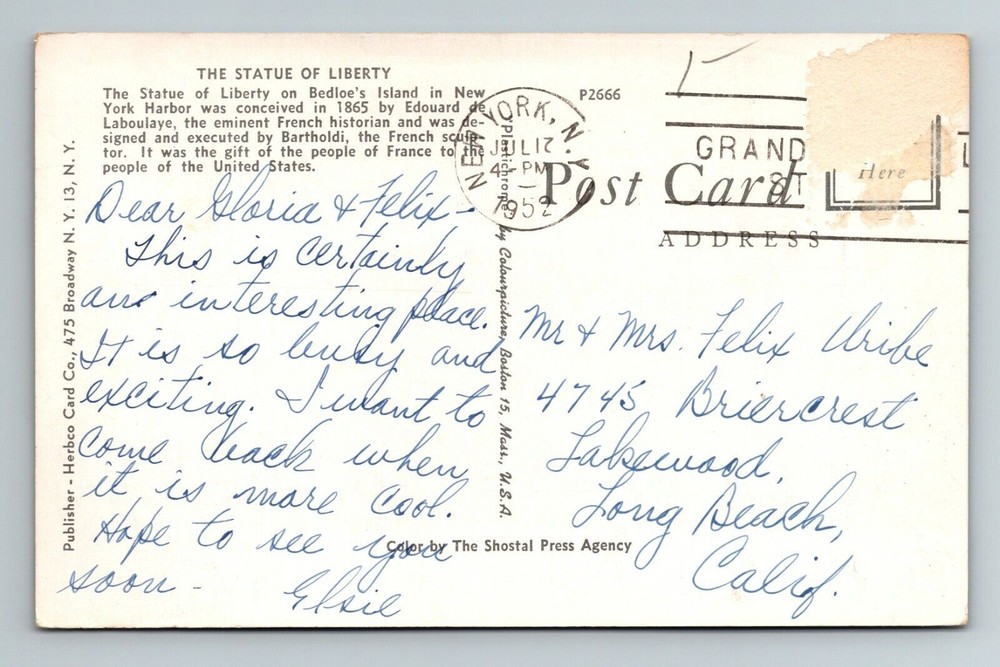 THE STATUE OF LIBERTY
The Statue of Liberty on Bedloe's Island in New
York Harbor was conceived in 1865 by Edouard de
Laboulaye, the eminent French historian and was de-
signed and executed by Bartholdi, the French sculp-
tor. It was the gift of the people of France to the
people of the United States.
Dear Gloria & Felix -
This is certainly
an interesting place.
It is so busy and
exciting. I want to
come back when
it is more cool.
Hope to see you
soon -
Elsie
Publisher - Herbco Card Co., 475 Broadway N. Y. 13, N. Y.
Plastichrome by Colourpicture, Boston 15, Mass., U. S. A.
Color by The Shostal Press Agency
P2666
NEW YORK, N.Y.
JUL 17
4 - PM
1952
GRAND
ST
Here
Post Card
ADDRESS
Mr & Mrs. Felix Uribe
4745 Briercrest
Lakewood,
Long Beach,
Calif.